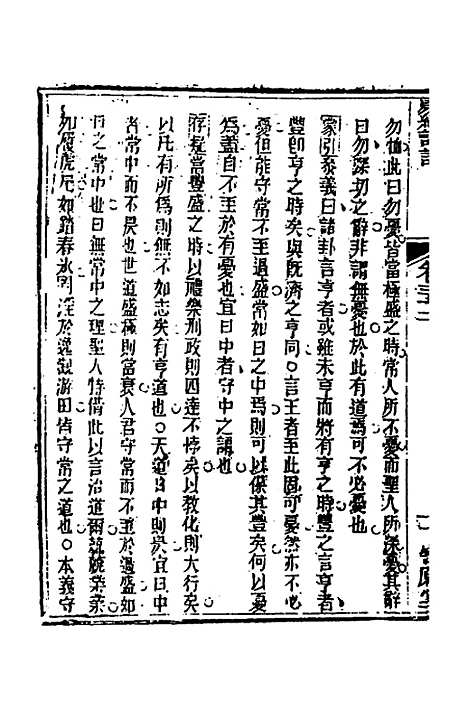 勿恤此曰勿憂皆當極盛之時常人所不憂而聖人所深憂其辭
曰勿深切之辭非謂無憂也於此有道焉可不必憂也
蒙引蔡義曰諸卦言亨者或雖未亨而將有亨之時豐之言亨者
豐即亨之時矣與旣濟之亨同○言王者至此固可憂然亦不必
憂但能守常不至過盛常如日之中焉則可以保其豐矣何以憂
爲蓋自不至於有憂也宜日中者守中之謂也
存疑當豐盛之時以禮樂刑政則四達不悖矣以敎化則大行矣
以凡有所爲則無不如志矣有亨道也○天道日中則昃宜日中
者常中而不昃也世道盛極則當衰人君守常而不至於過盛如
日之常中也日無常中之理聖人特借此以言治道爾兢兢業業
如履虎尾如蹈春氷罔淫於逸遊田皆守常之道也○本義守